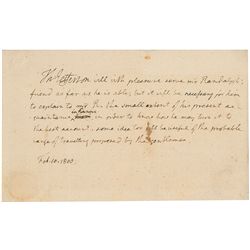 Th: Jefferson will with pleasure serve mr Randolph's
friend as far as he is able; but it will be necessary for him
to explain to mr the small extent of his present ac-
in Europe
quaintance, in order to know how he may turn it to
the best account. some idea too will be useful of the probable
of travelling proposed by the gentleman.
Feb. 10. 1803.